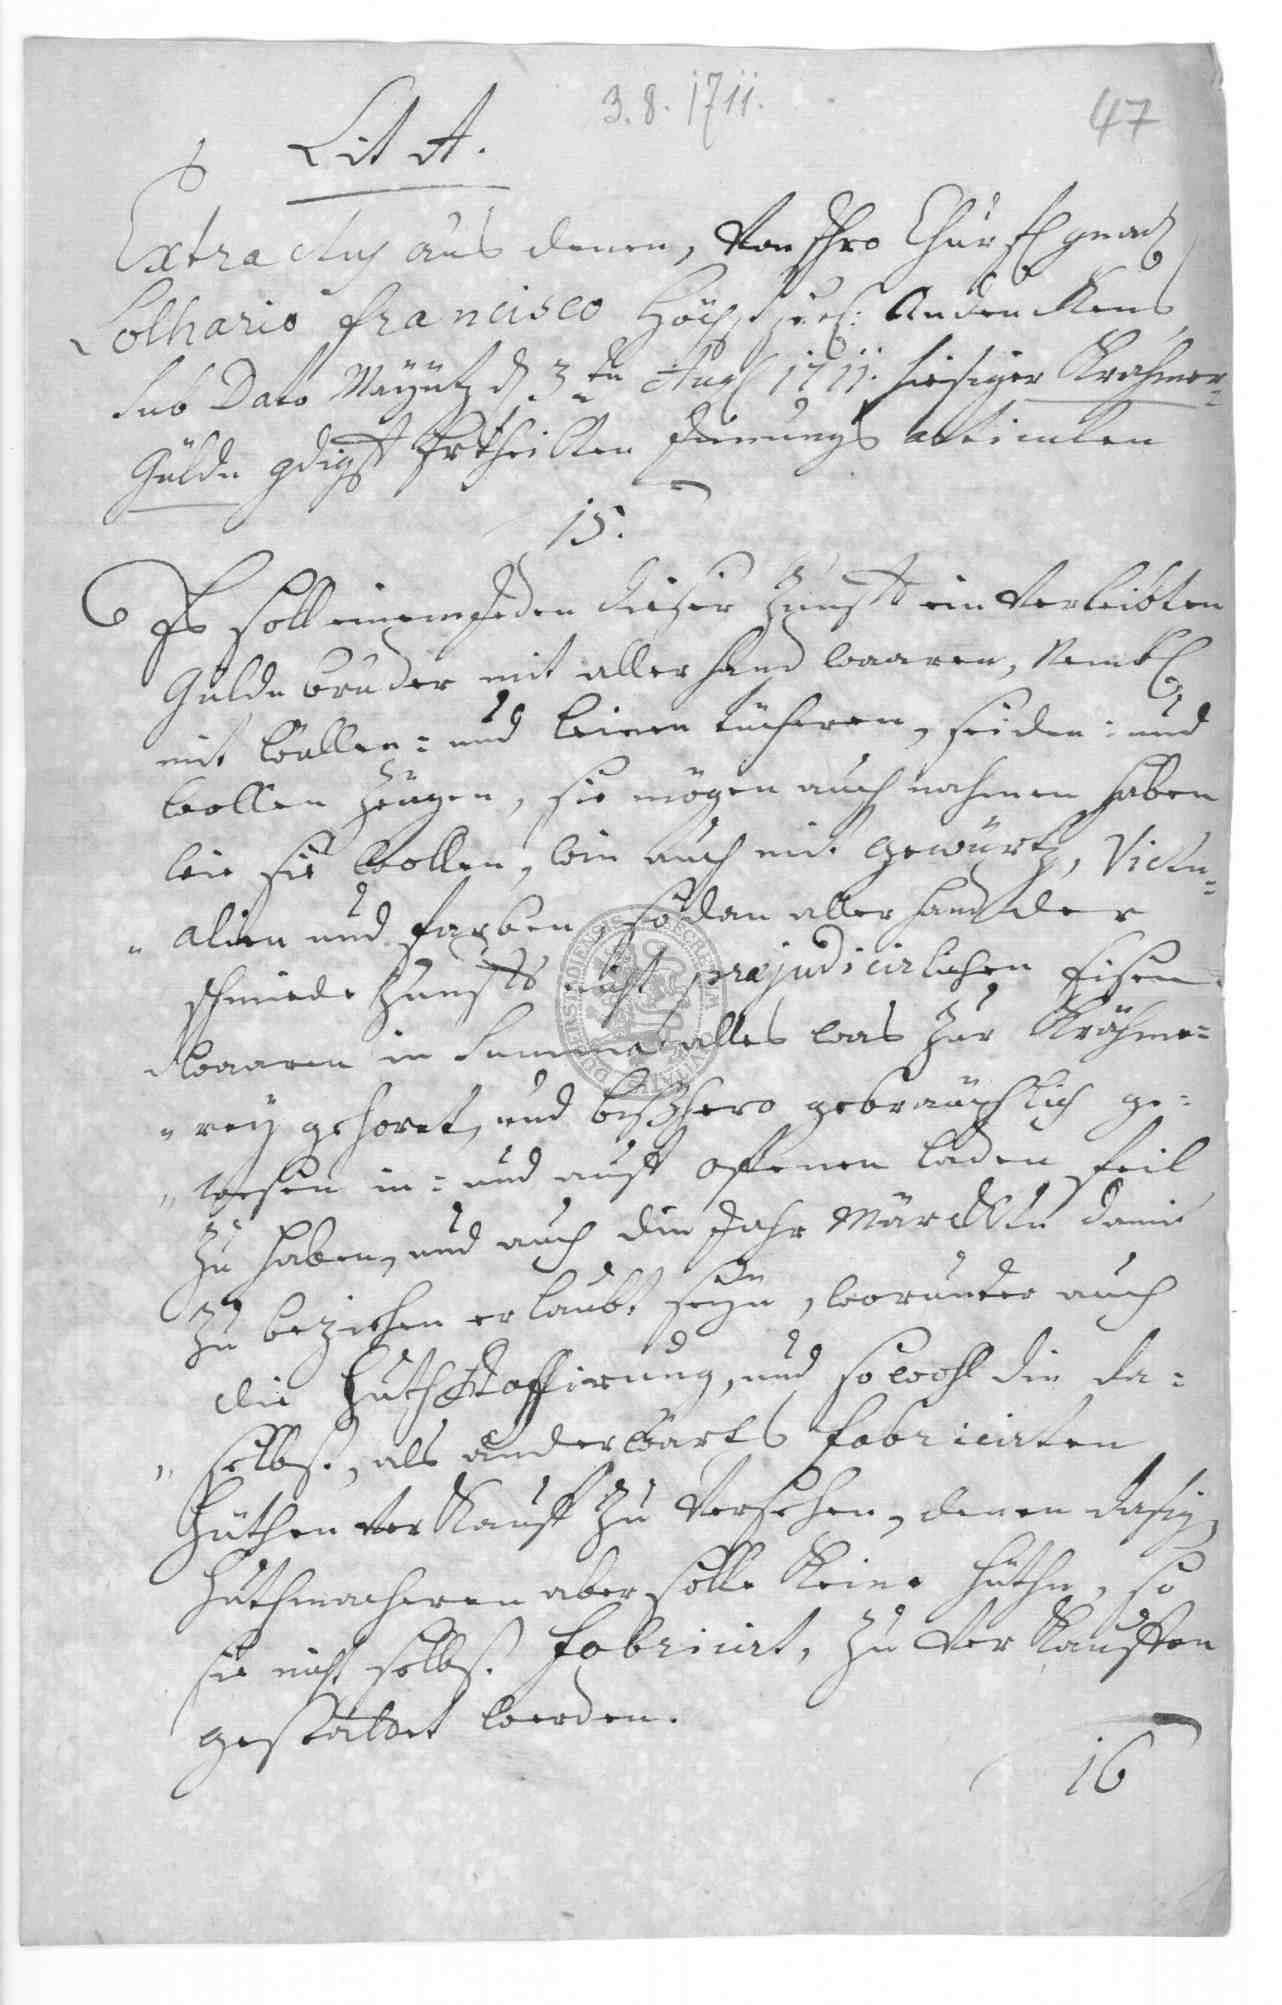 3. 8. 1711.
47
Lit A.
Extractus aus denen, von Ihro Churfl gnad
Lothario Francisco Höchst Andenckens
sub Dato Mayntz d. 3ten Aug 1711. hiesiger Krahmer=
Gülde gdigst Ertheilten Innungs articulen
15.
Es soll einem Jeden dieser Zunfft ein Verleibten
Gülde bruder mit aller hand waaren, Nembl
mit wollen= und leinen tücheren, seiden= und
wollen Zeugen, sie mögen auch nahmen haben
wie sie wollen, wie auch mit gewürtz, Victu=
"alien und farben, sodan aller hand der
schmiede Zunfft nicht praejudicirlichen Eisen
waaren in Summa alles was zur Krähme=
"rey gehoret, und bißhero gebräuchlich ge=
"wesen in= und auff offenen laden feil
zu haben, und auch die Jahr Märckte damit
zu beziehen erlaubt seyn, worunter auch
die Huthstaffirung, und sowohl die da=
"selbst, als anderwärts fabricirten
Hüthen verkauff zu Verstehen, denen dasig
Huthmacheren aber solle keine Hüthe, so
sie nicht selbst fabricirt, zu verkauffen
gestattet werden.
16